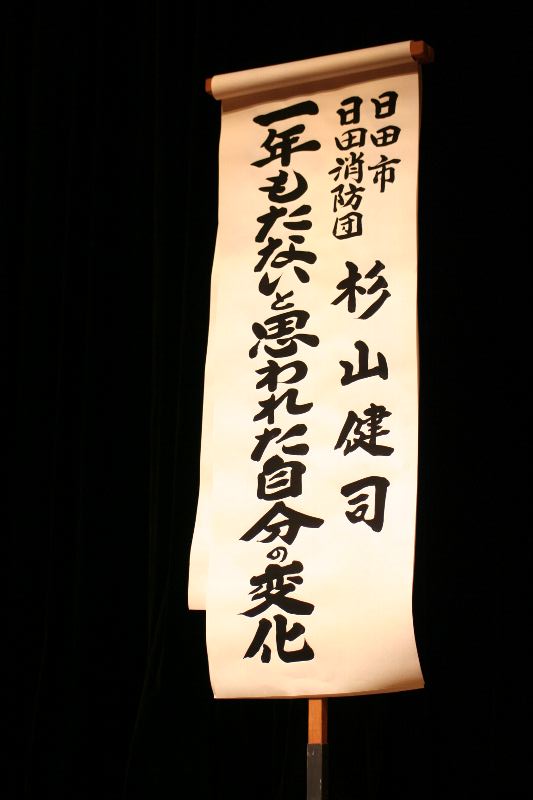 日田市
日田消防団
杉山健司
一年もたないと思われた自分の変化